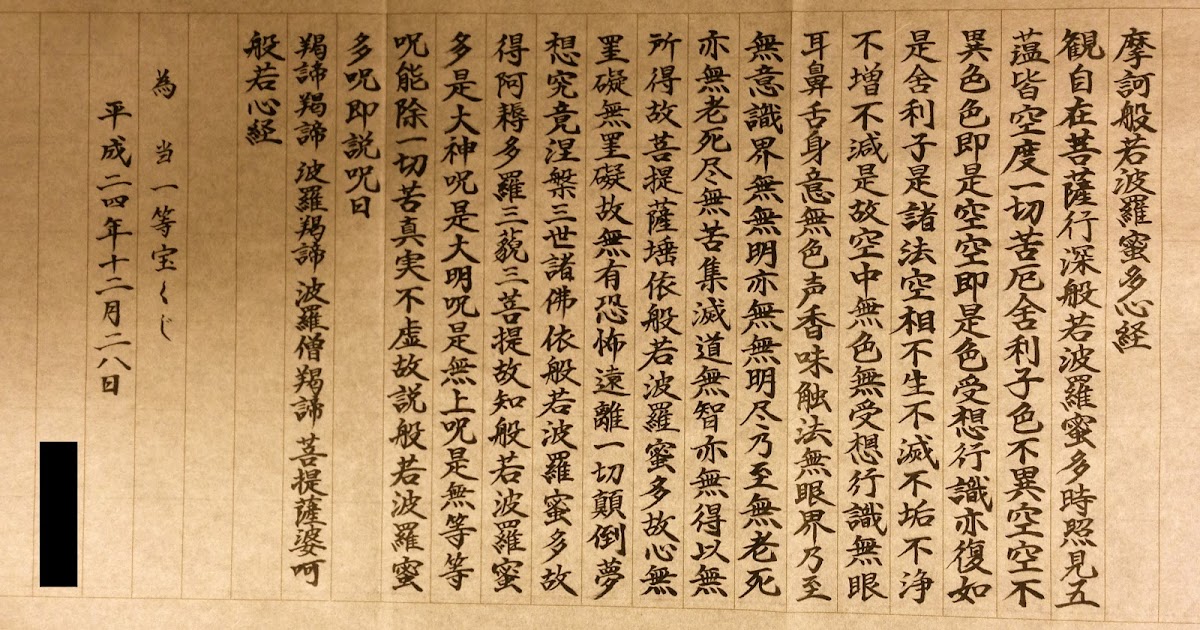 摩訶般若波羅蜜多心経
観自在菩薩行深般若波羅蜜多時照見五
薀皆空度一切苦厄舍利子色不異空空不
異色色即是空空即是色受想行識亦復如
是舍利子是諸法空相不生不滅不垢不浄
不増不減是故空中無色無受想行識無眼
耳鼻舌身意無色声香味触法無眼界乃至
無意識界無無明亦無無明尽乃至無老死
亦無老死尽無苦集滅道無智亦無得以無
所得故菩提薩埵依般若波羅蜜多故心無
罣礙無罣礙故無有恐怖遠離一切顛倒夢
想究竟涅槃三世諸佛依般若波羅蜜多故
得阿耨多羅三藐三菩提故知般若波羅蜜
多是大神呪是大明呪是無上呪是無等等
呪能除一切苦真実不虚故説般若波羅蜜
多呪即説呪曰
羯諦羯諦 波羅羯諦 波羅僧羯諦 菩提薩婆呵
般若心経
為 当一等宝くじ
平成二四年十二月二八日